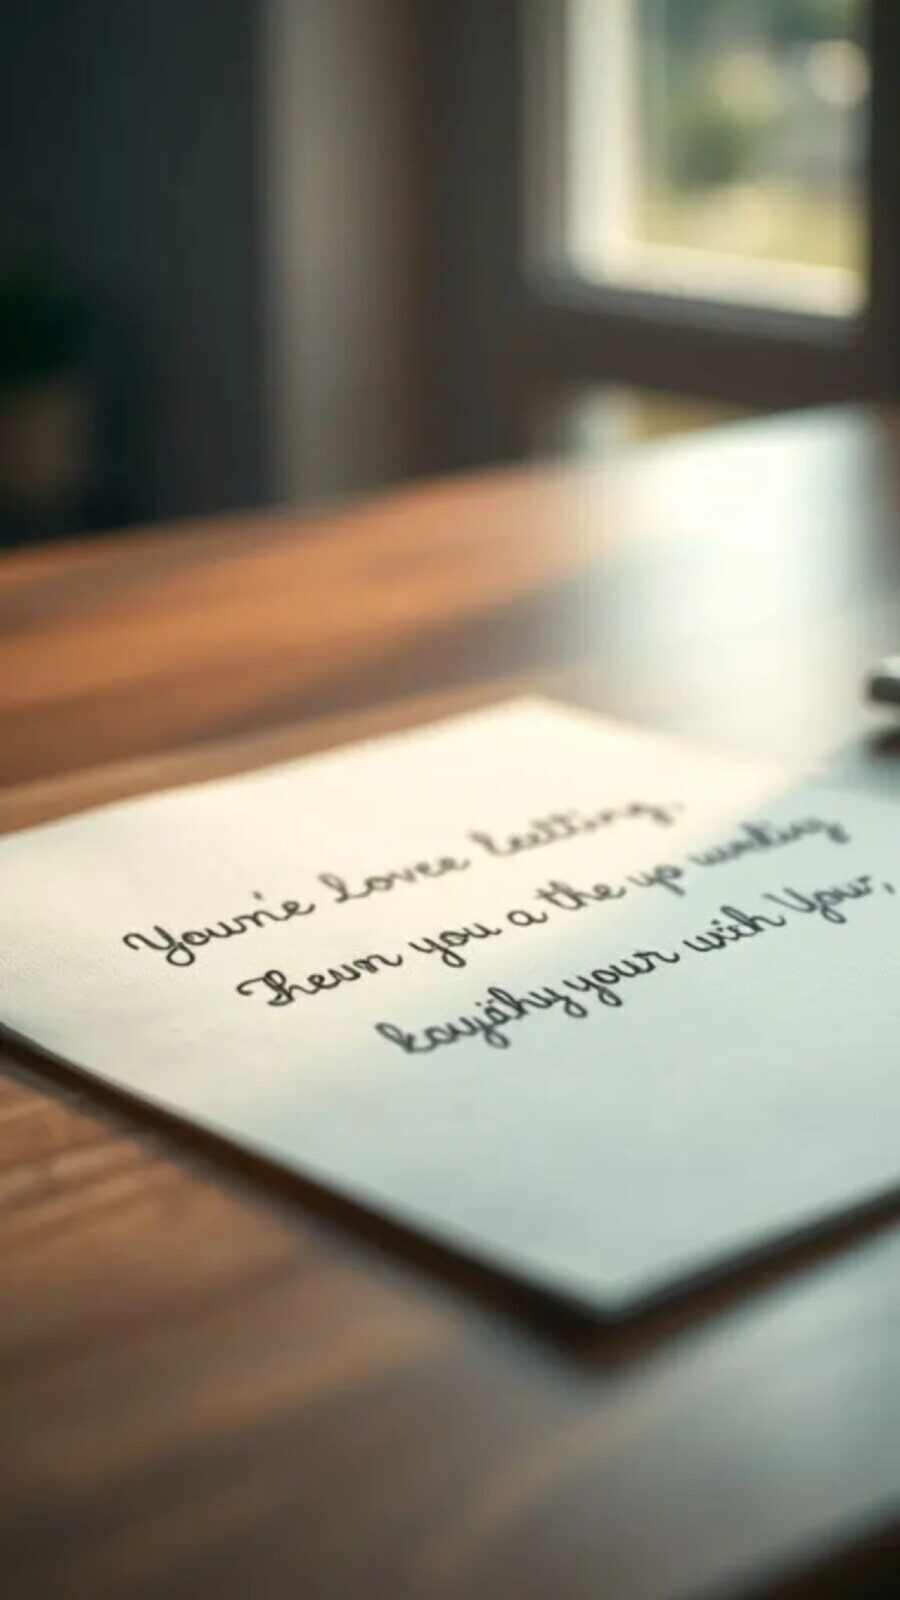 Youn'e lovee letting.
Theum you a the up
koyjthy your with your,